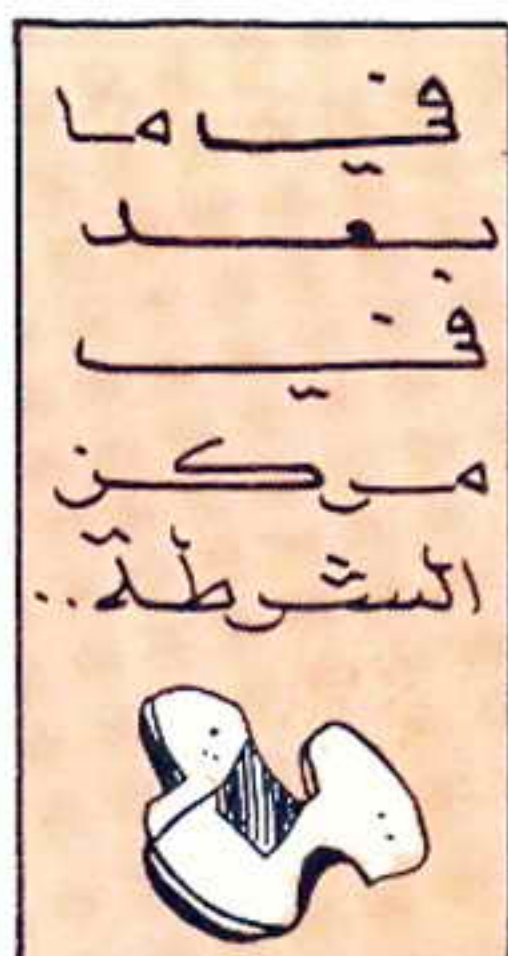 في ما
بعد
في
مركز
الشرطة..